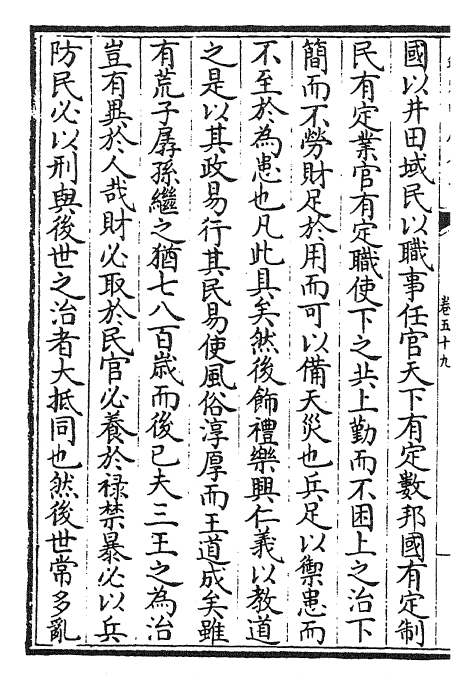 國以井田域民以職事任官天下有定數邦國有定制
民有定業官有定職使下之共上勤而不困上之治下
簡而不勞財足於用而可以備天災也兵足以禦患而
不至於為患也凡此具矣然後飾禮樂興仁義以教道
之是以其政易行其民易使風俗淳厚而王道成矣雖
有荒子孱孫繼之猶七八百歲而後已夫三王之為治
豈有異於人哉財必取於民官必養於禄禁暴必以兵
防民必以刑與後世之治者大抵同也然後世常多亂
卷五十九